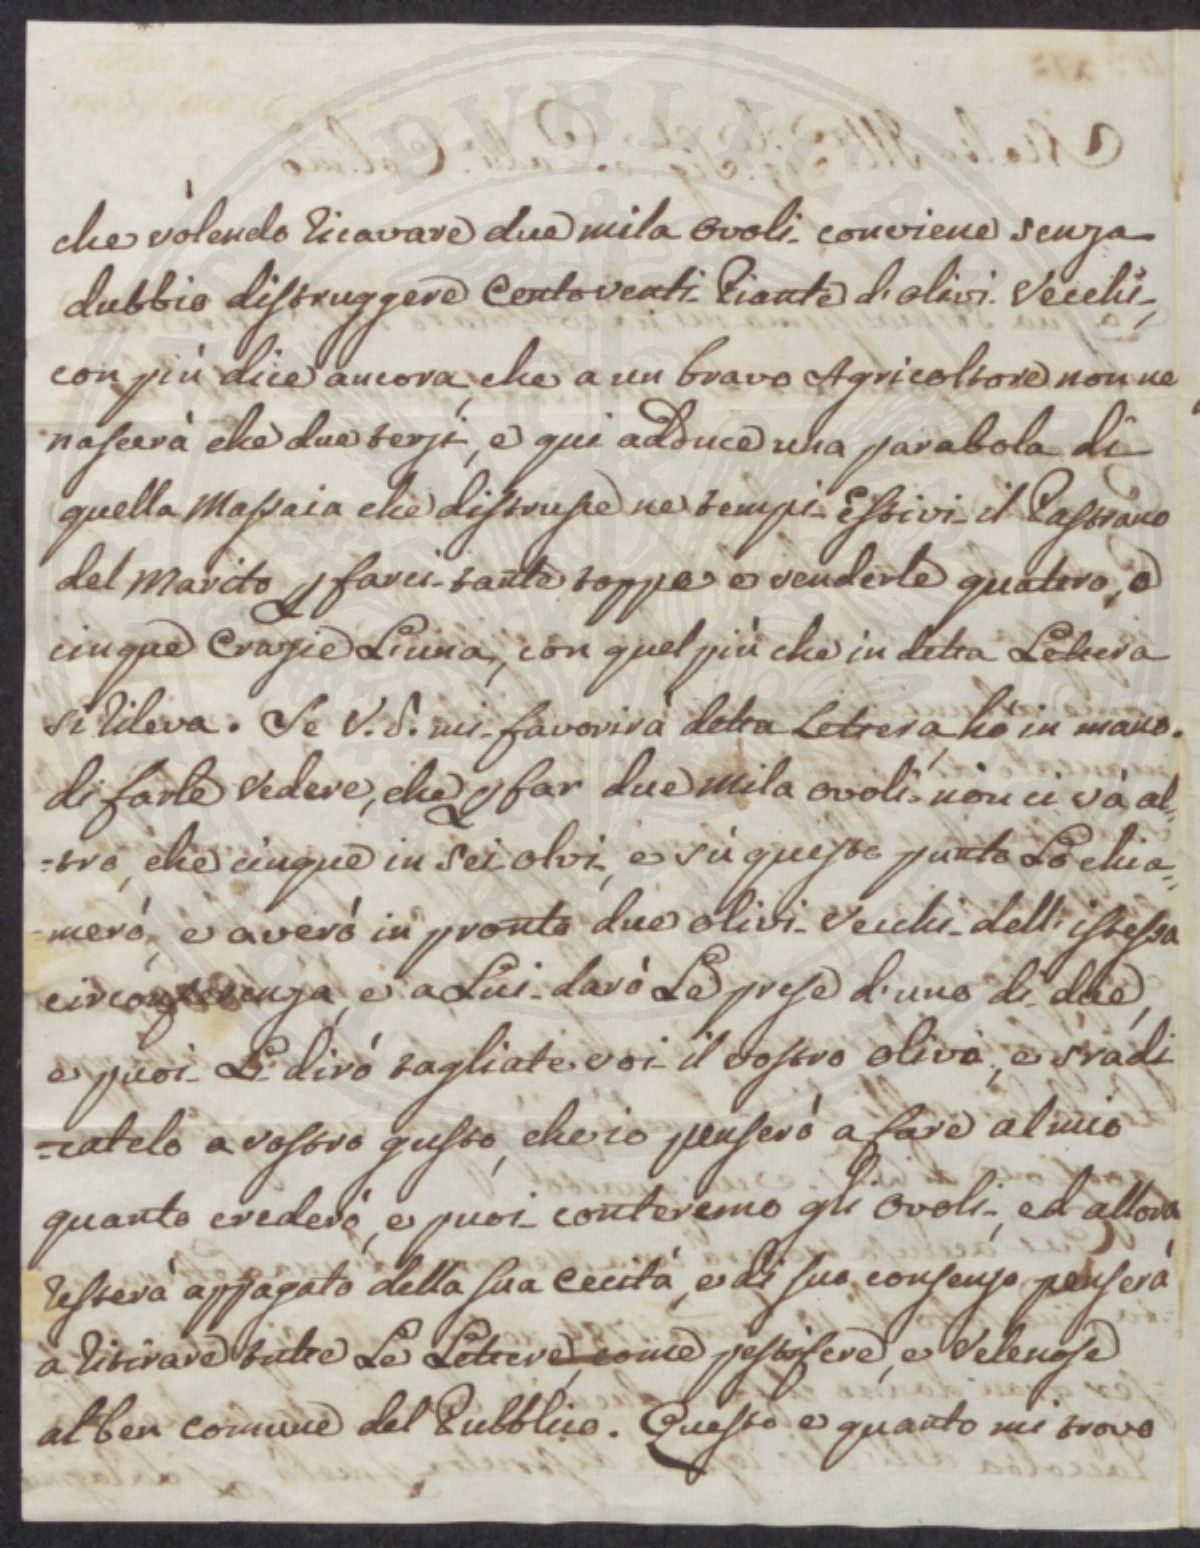 che volendo ricavare due mila ovoli conviene senza
dubbio distruggere Centoventi Piante d'olivi Vecchi,
con più dice ancora, che a un bravo Agricoltore non ne
nascerà che due terzi, e qui adduce una parabola di
quella Massaia che distruse ne tempi Estivi il Pastrano
del Marito p farci tante toppe e venderle quattro, o
cinque Crazie L'una, con quel più che in detta Lettera
si rileva. Se V. S. mi favorirà detta Lettera, hò in mano
di farle vedere, che p far due mila ovoli non ci và al-
-tro, che cinque in sei olvi, e sù questo punto Lo chia-
-merò, e averò in pronto due olivi Vecchi dell'istessa
circonferenza, e a Lui darò Le prese d'uno di due,
e puoi Li dirò tagliate voi il vostro olivo, e sradi
-catelo a vostro gusto, che io penserò a fare al mio
quanto crederò, e puoi conteremo gli ovoli, ed allora
resterà appagato della sua Cecità, e di suo consenso penserà
a ritirare tutte Le Lettere, come pestifere, e Velenose
al ben comune del Pubblico. Questo e quanto mi trovo